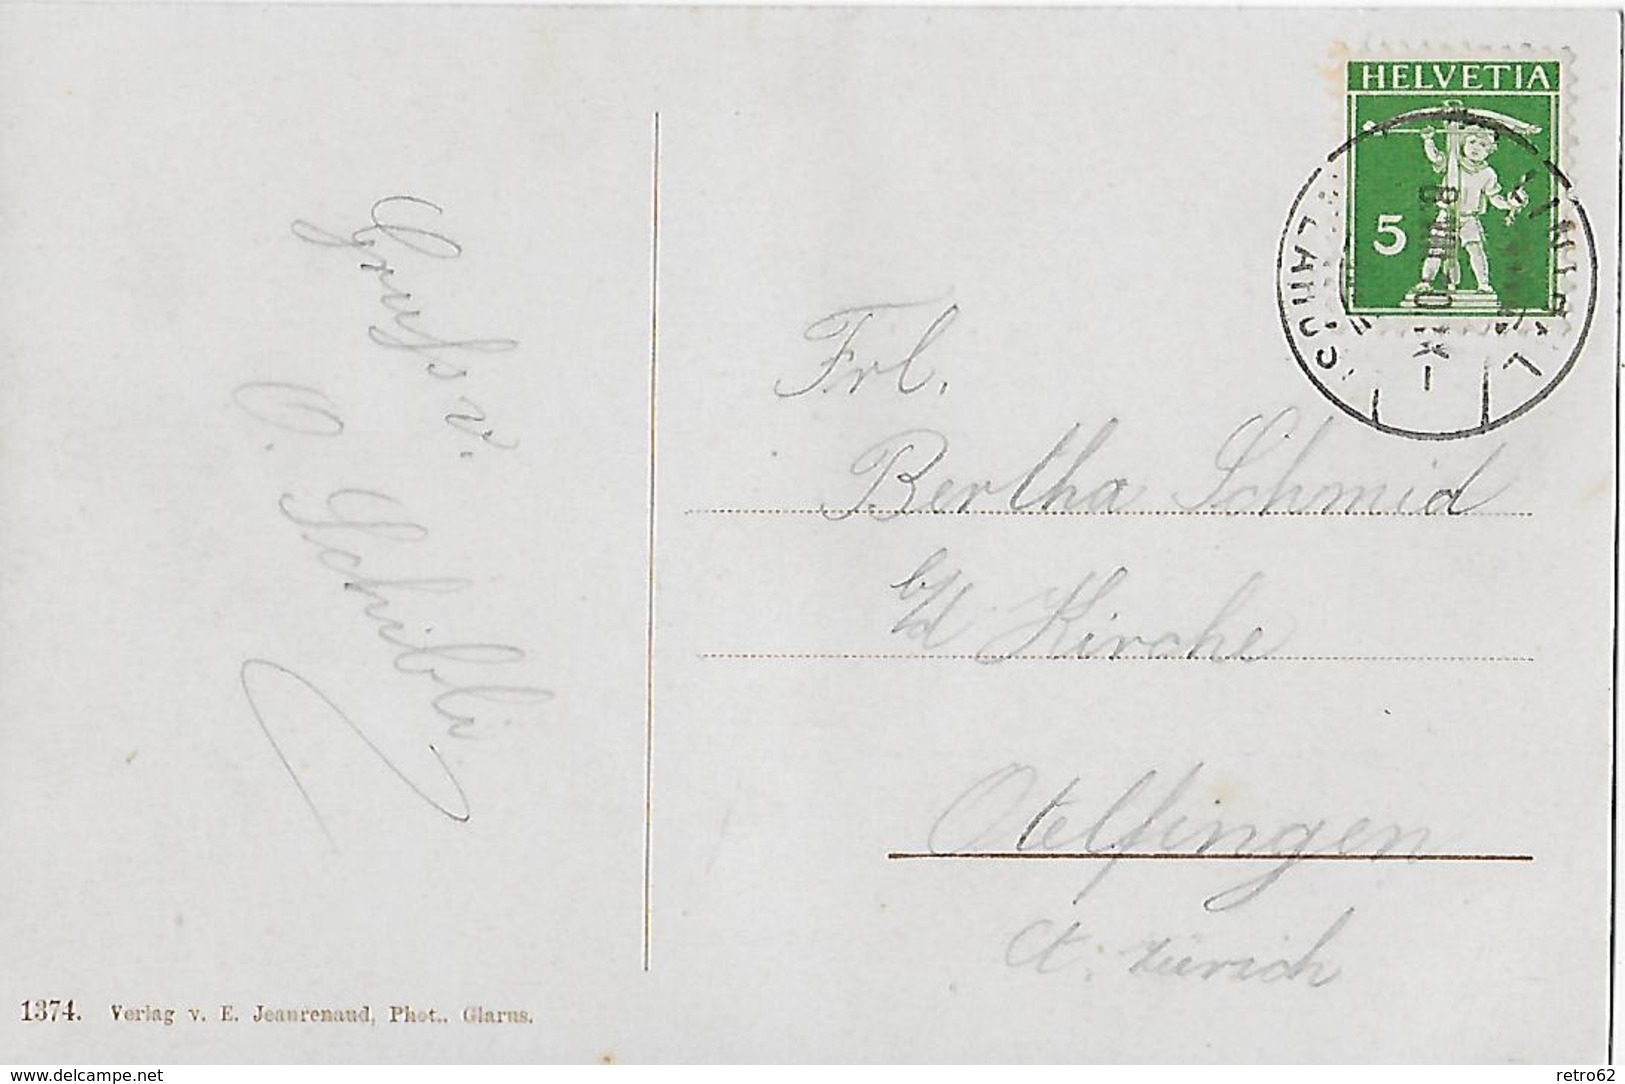 HELVETIA
5
Gruss v.
O. Schibli
Frl.
Bertha Schmid
b/d Kirche
Otelfingen
Ct. Zürich
1374. Verlag v. E. Jeanrenaud, Phot.. Glarus.
www.delcampe.net
retro62